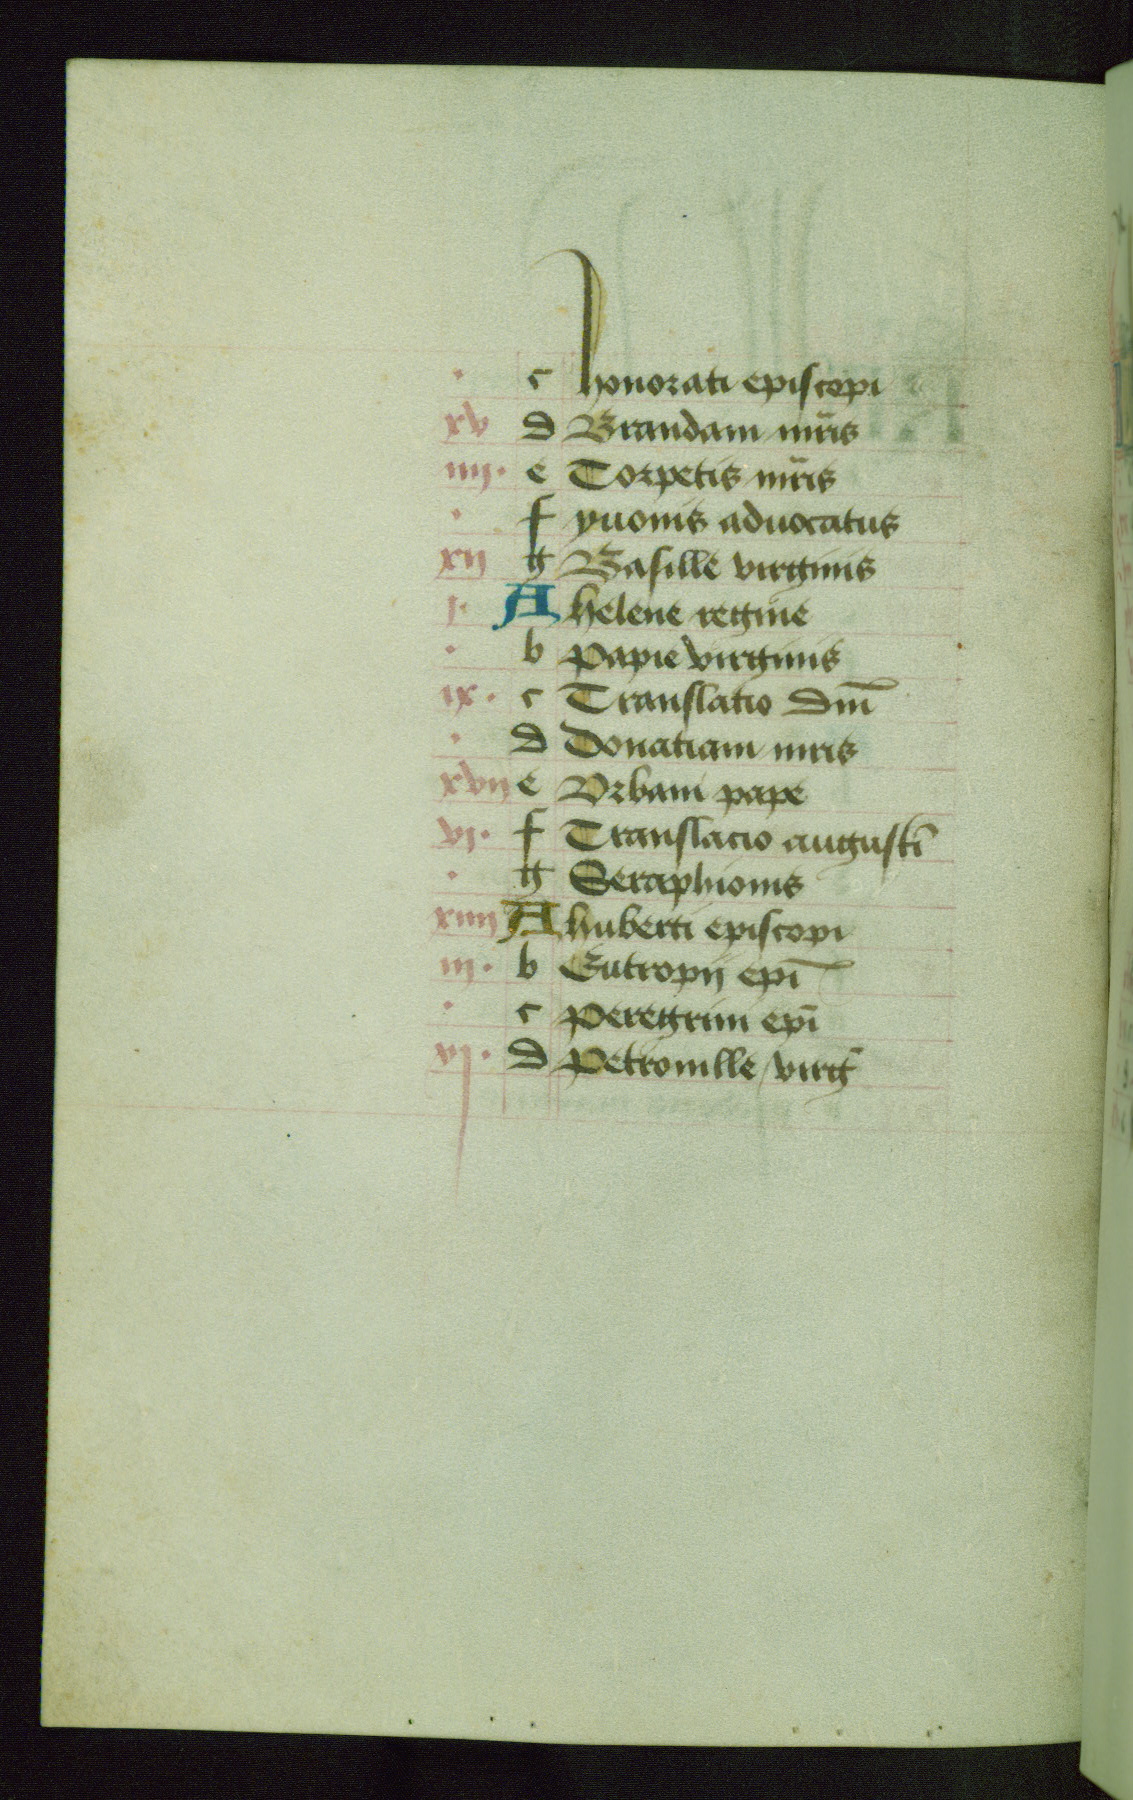 c honorati episcopi
xv d Brandani mr̃is
iiij. e Torpetis mr̃is
f yuonis aduocatus
xij g Basille virginis
j. A helene regine
b Papie virginis
ix. c Translatio dm̃
d Donatiani mris
xvij e Vrbani pape
vj. f Translacio augustĩ
g Seraphionis
xiiij A huberti episcopi
iij. b Eutropij epĩ
c Peregrini epĩ
vj. d Petronille virg̃